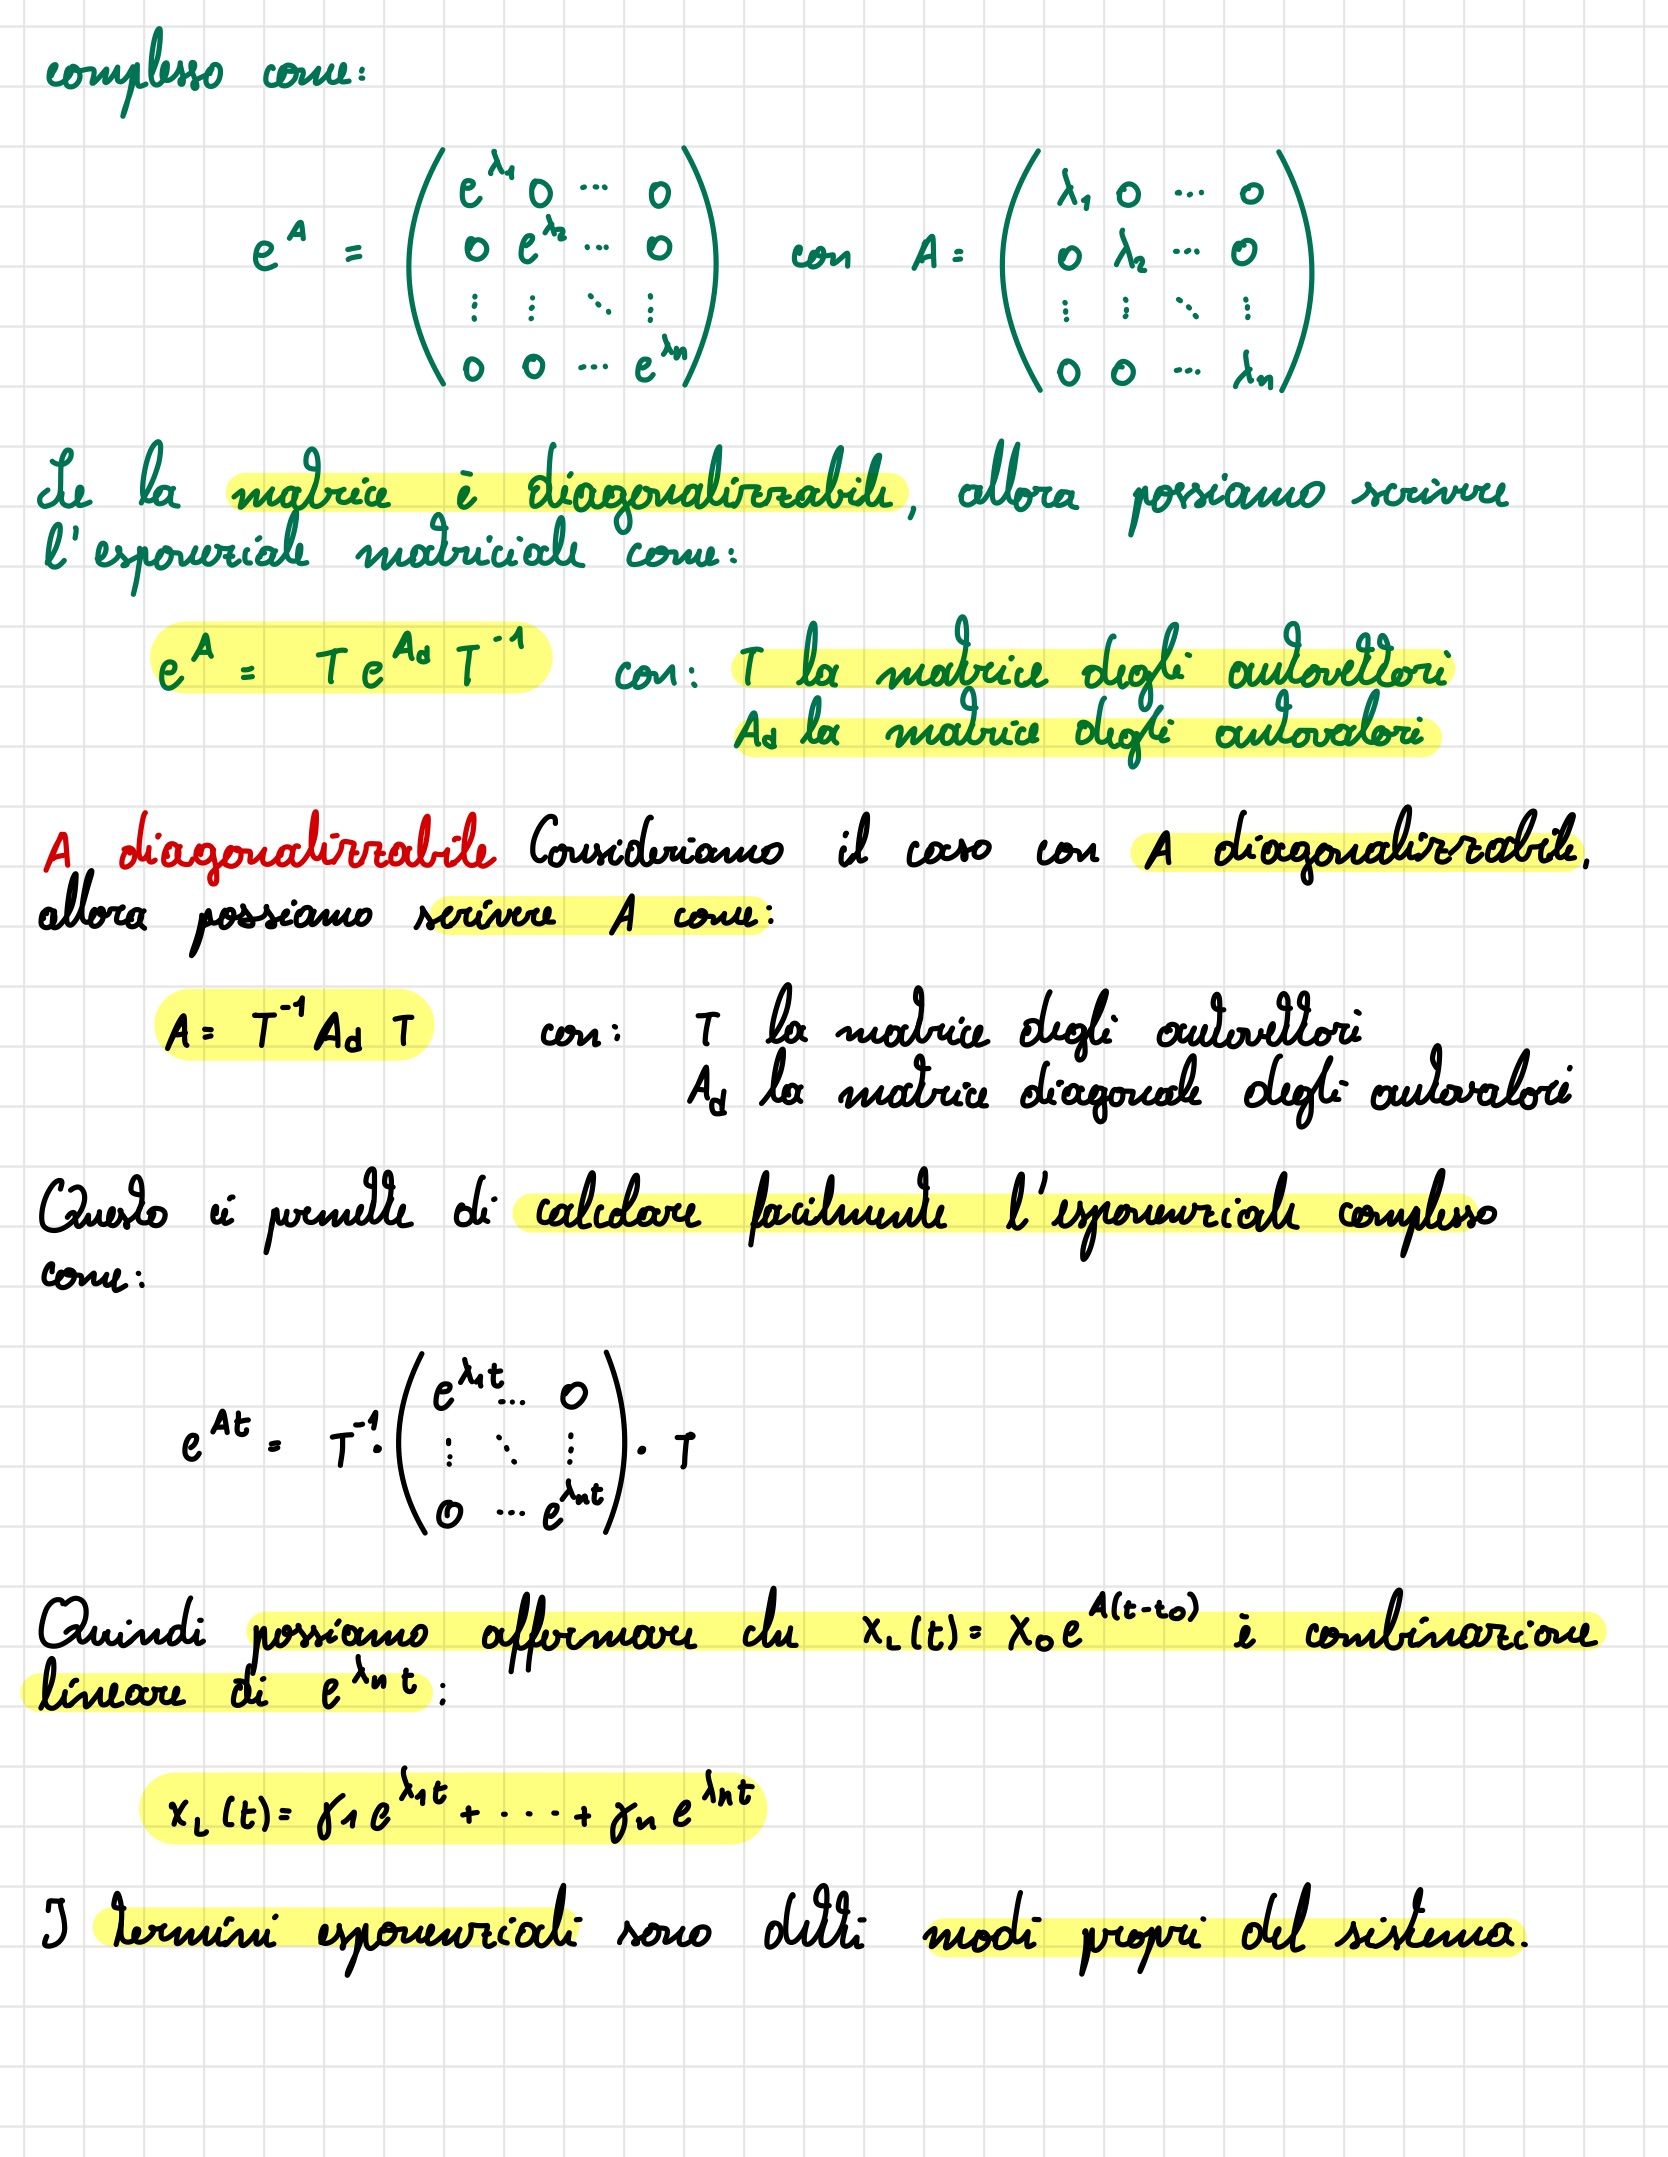 complesso come:
e^A = ( e^λ1 0 ... 0 ; 0 e^λ2 ... 0 ; ⋮ ⋮ ⋱ ⋮ ; 0 0 ... e^λn ) con A = ( λ1 0 ... 0 ; 0 λ2 ... 0 ; ⋮ ⋮ ⋱ ⋮ ; 0 0 ... λn )
Se la matrice è diagonalizzabile, allora possiamo scrivere
l'esponenziale matriciale come:
e^A = T e^Ad T^-1 con: T la matrice degli autovettori
Ad la matrice degli autovalori
A diagonalizzabile Consideriamo il caso con A diagonalizzabile,
allora possiamo scrivere A come:
A = T^-1 Ad T con: T la matrice degli autovettori
Ad la matrice diagonale degli autovalori
Questo ci permette di calcolare facilmente l'esponenziale complesso
come:
e^At = T^-1 · ( e^λ1t ... 0 ; ⋮ ⋱ ⋮ ; 0 ... e^λnt ) · T
Quindi possiamo affermare che xL(t) = x0 e^A(t-t0) è combinazione
lineare di e^λn t :
xL(t) = γ1 e^λ1t + ···· + γn e^λnt
I termini esponenziali sono detti modi propri del sistema.